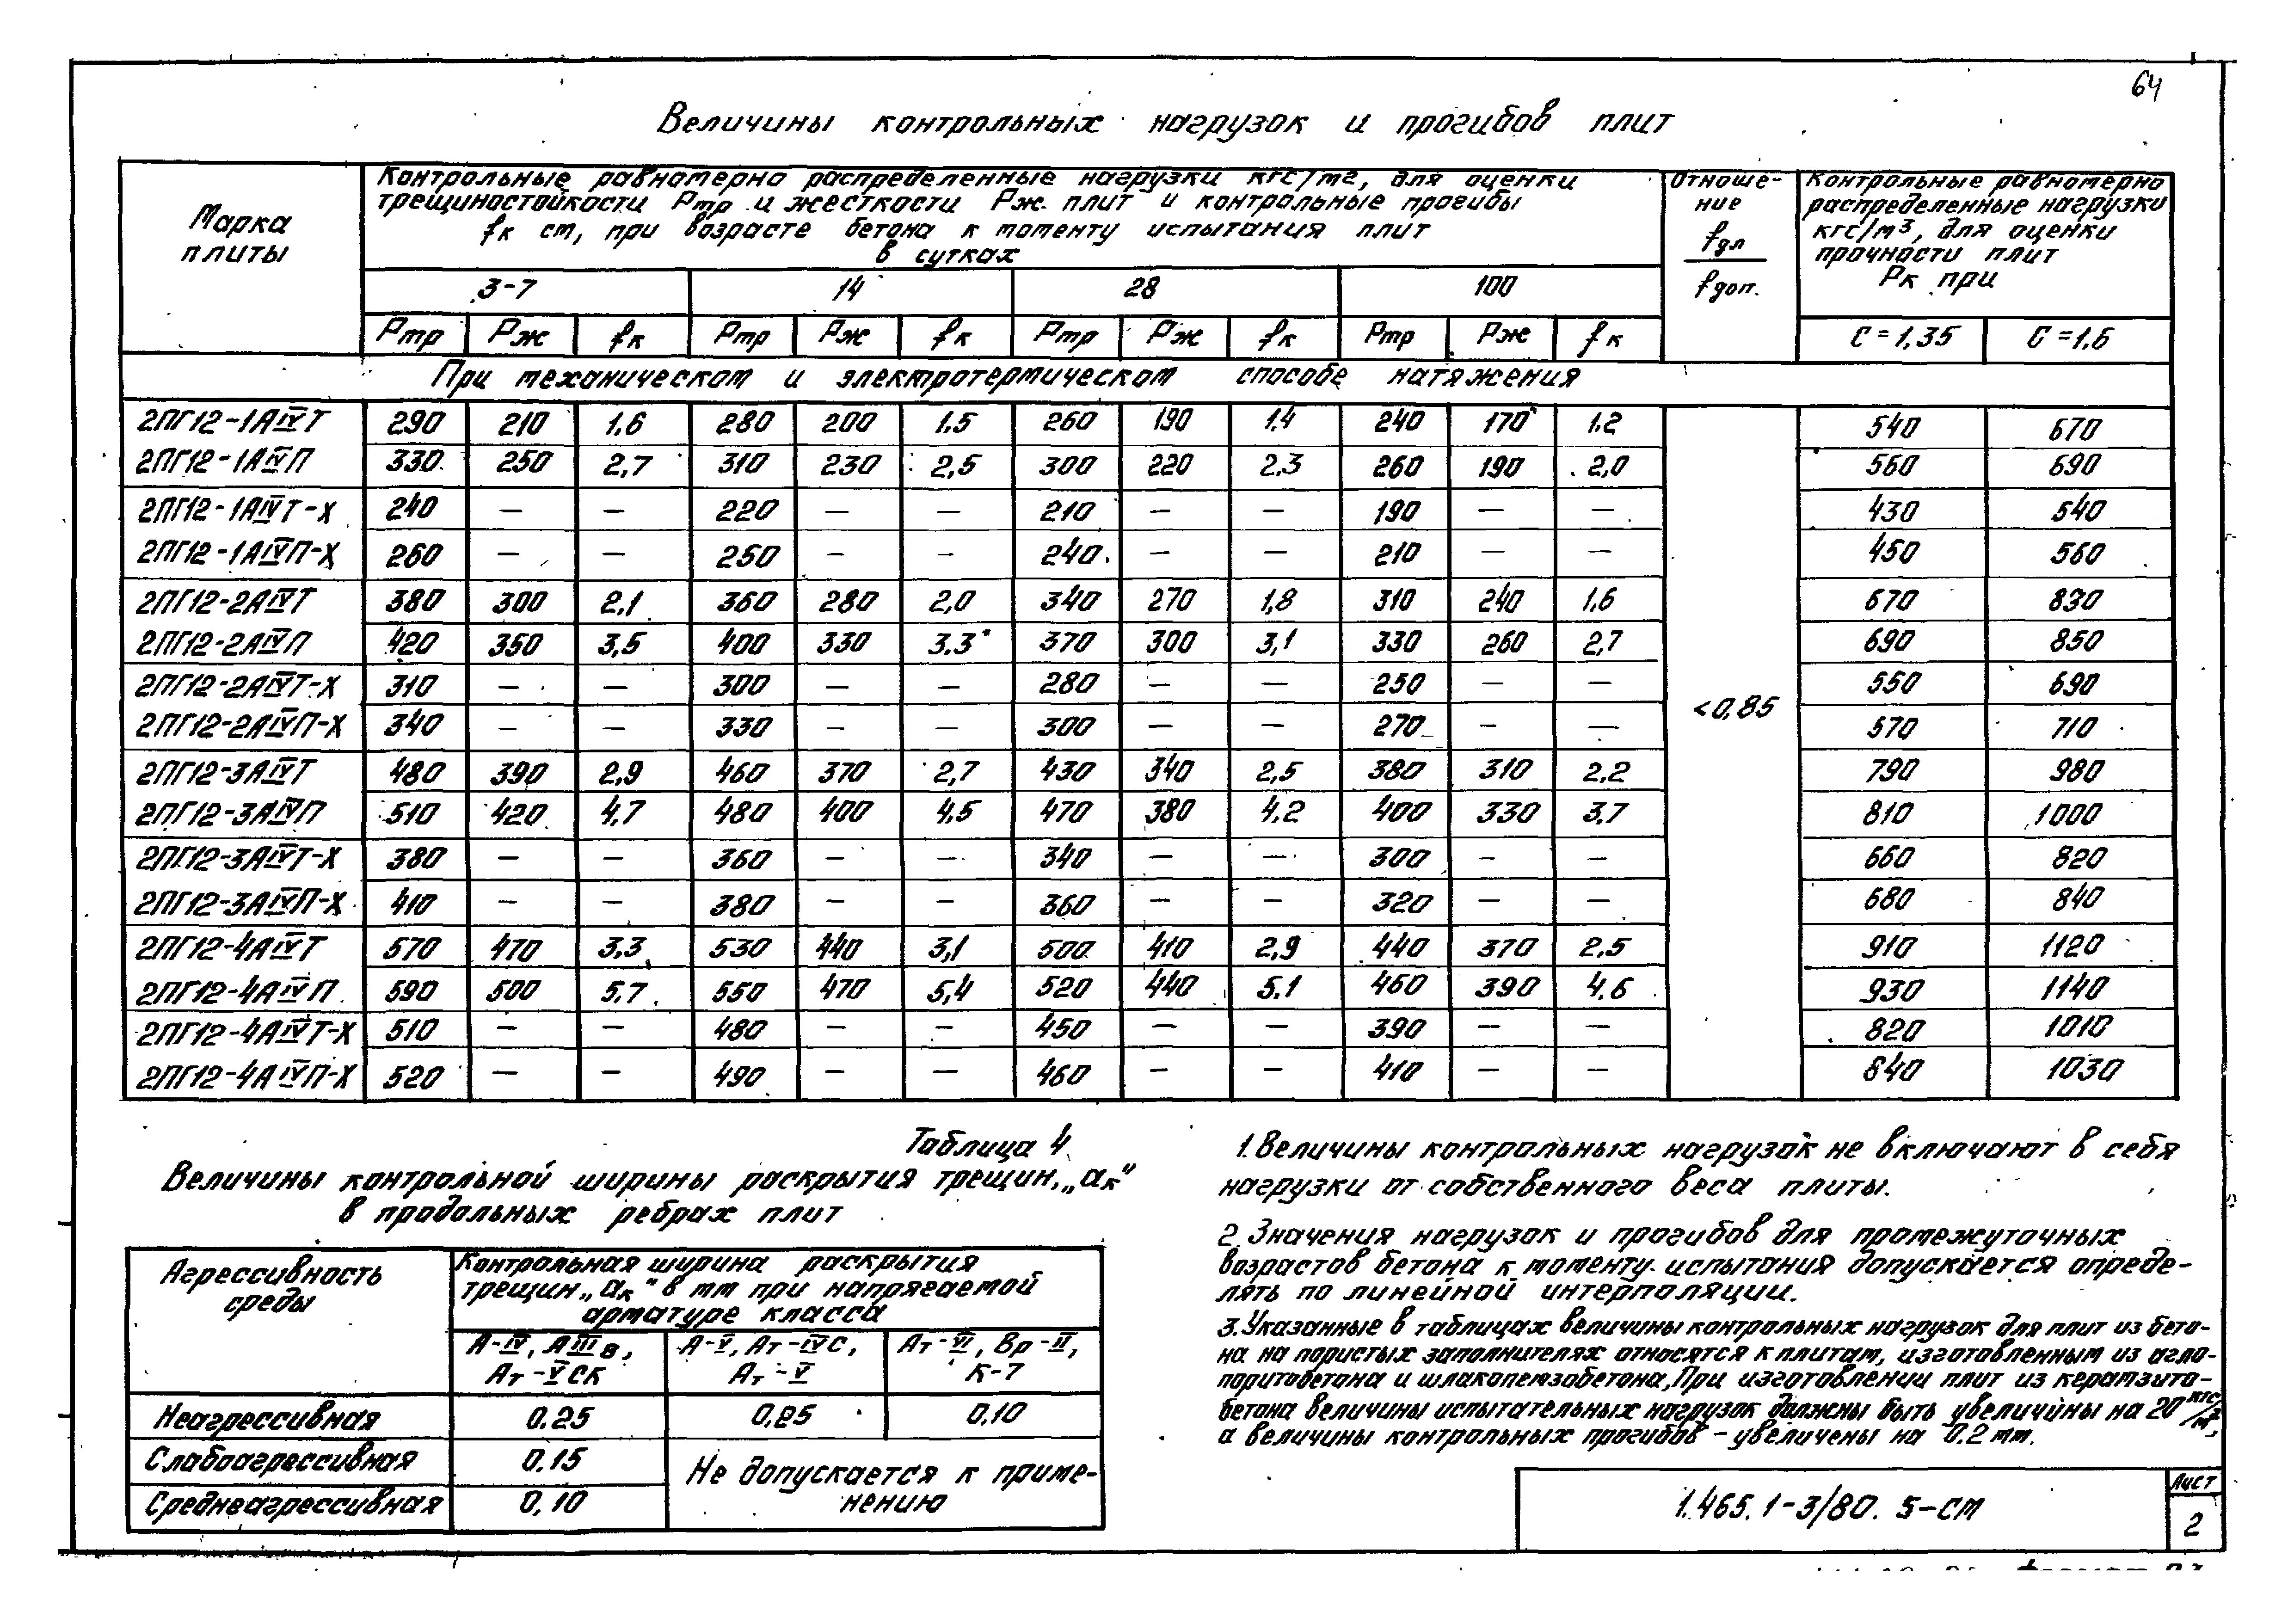 64
Величины контрольных нагрузок и прогибов плит
Марка плиты
Контрольные равномерно распределенные нагрузки кгс/м2, для оценки
трещиностойкости Ртр и жесткости Рж плит и контрольные прогибы
fк см, при возрасте бетона к моменту испытания плит
в сутках
Отноше-
ние
fдл
fдоп.
Контрольные равномерно
распределенные нагрузки
кгс/м³, для оценки
прочности плит
Рк при
3-7 14 28 100
Ртр Рж fк Ртр Рж fк Ртр Рж fк Ртр Рж fк С=1,35 С=1,6
При механическом и электротермическом способе натяжения
2ПГ12-1АIVТ 290 210 1,6 280 200 1,5 260 190 1,4 240 170 1,2 540 670
2ПГ12-1АIVП 330 250 2,7 310 230 2,5 300 220 2,3 260 190 2,0 560 690
2ПГ12-1АIVТ-Х 240 — — 220 — — 210 — — 190 — — 430 540
2ПГ12-1АIVП-Х 260 — — 250 — — 240 — — 210 — — 450 560
2ПГ12-2АIVТ 380 300 2,1 360 280 2,0 340 270 1,8 310 240 1,6 670 830
2ПГ12-2АIVП 420 350 3,5 400 330 3,3 370 300 3,1 330 260 2,7 690 850
2ПГ12-2АIVТ-Х 310 — — 300 — — 280 — — 250 — — 550 690
2ПГ12-2АIVП-Х 340 — — 330 — — 300 — — 270 — — 570 710
<0,85
2ПГ12-3АIVТ 480 390 2,9 460 370 2,7 430 340 2,5 380 310 2,2 790 980
2ПГ12-3АIVП 510 420 4,7 480 400 4,5 470 380 4,2 400 330 3,7 810 1000
2ПГ12-3АIVТ-Х 380 — — 360 — — 340 — — 300 — — 660 820
2ПГ12-3АIVП-Х 410 — — 380 — — 360 — — 320 — — 680 840
2ПГ12-4АIVТ 570 470 3,3 530 440 3,1 500 410 2,9 440 370 2,5 910 1120
2ПГ12-4АIVП 590 500 5,7 550 470 5,4 520 440 5,1 460 390 4,6 930 1140
2ПГ12-4АIVТ-Х 510 — — 480 — — 450 — — 390 — — 820 1010
2ПГ12-4АIVП-Х 520 — — 490 — — 460 — — 410 — — 840 1030
Таблица 4
Величины контрольной ширины раскрытия трещин „aк"
в продольных ребрах плит
Агрессивность
среды
Контрольная ширина раскрытия
трещин „aк" в мм при напрягаемой
арматуре класса
А-IV, АIIIв, А-V, Ат-IVС, Ат-VI, Вр-II,
Ат-VСК Ат-V К-7
Неагрессивная 0.25 0.25 0,10
Слабоагрессивная 0.15
Среднеагрессивная 0,10
Не допускается к приме-
нению
1. Величины контрольных нагрузок не включают в себя
нагрузки от собственного веса плиты.
2. Значения нагрузок и прогибов для промежуточных
возрастов бетона к моменту испытания допускается опреде-
лять по линейной интерполяции.
3. Указанные в таблицах величины контрольных нагрузок для плит из бето-
на на пористых заполнителях относятся к плитам, изготовленным из агло-
поритобетона и шлакопемзобетона, При изготовлении плит из керамзито-
бетона величины испытательных нагрузок должны быть увеличины на 20 кгс/м²,
а величины контрольных прогибов - увеличены на 0.2 мм.
1.465.1-3/80. 5-СМ
Лист
2